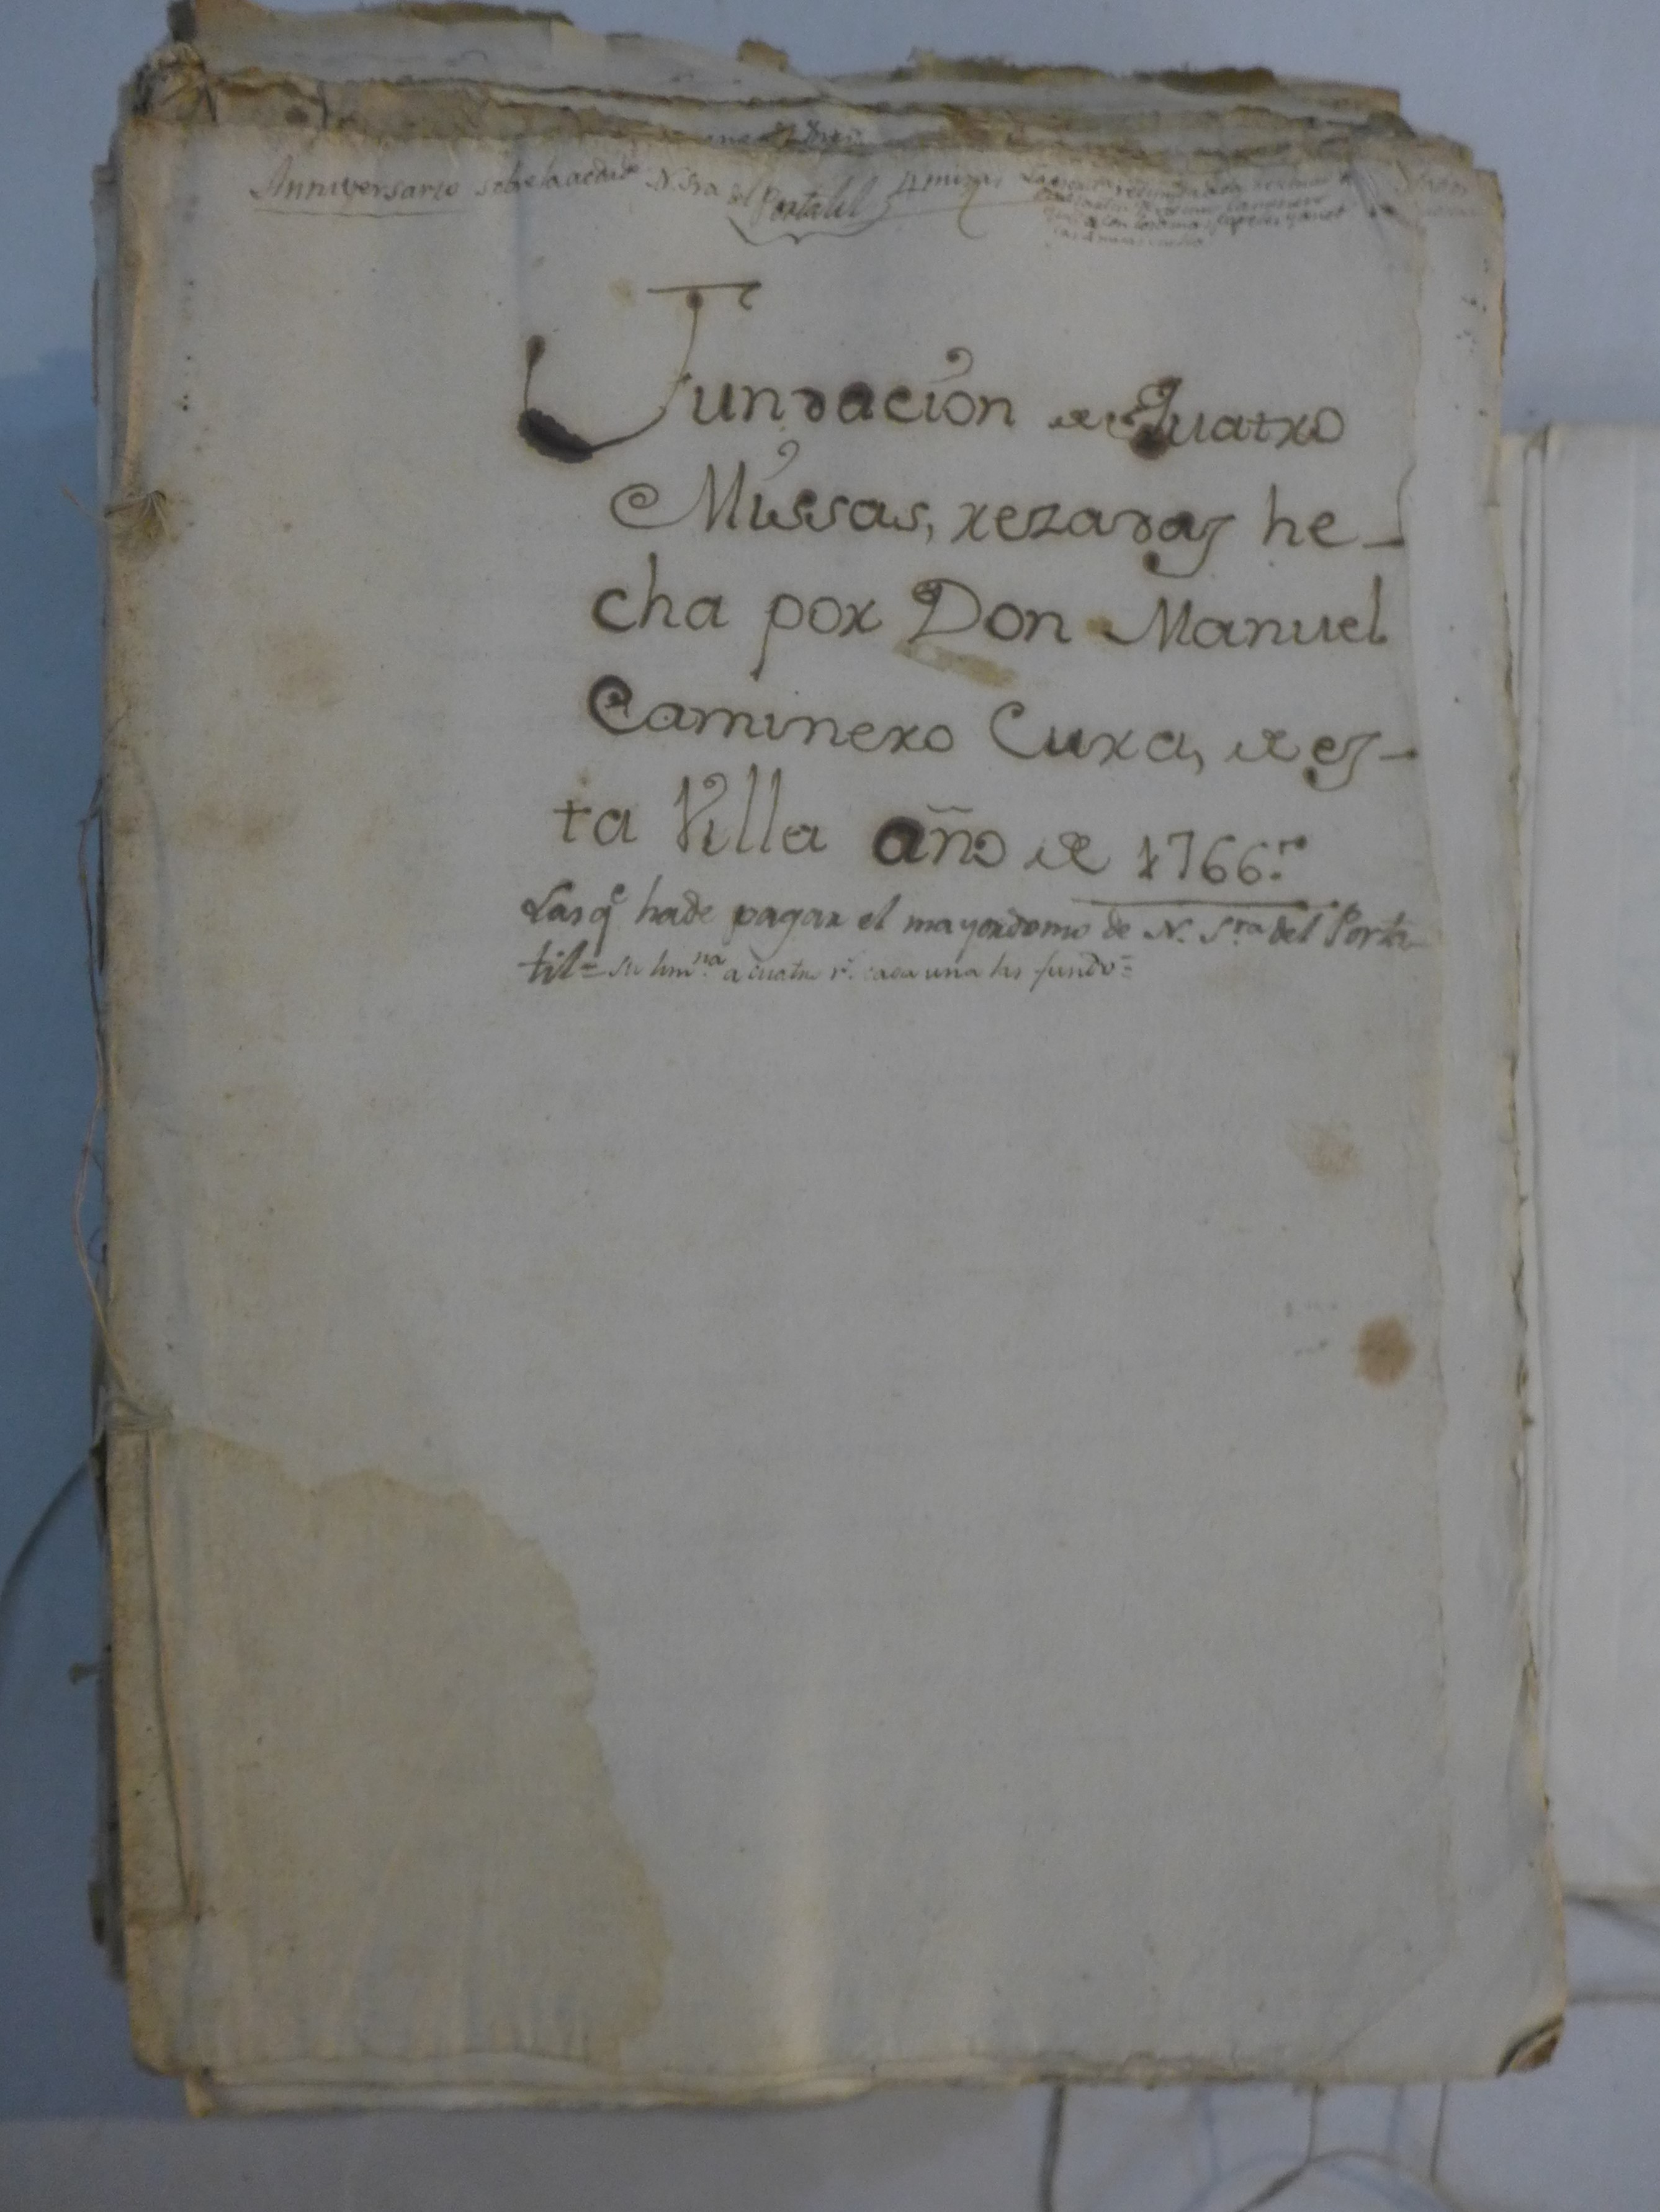 Anniversario N. Sra del Portatil 4 misas
Fundacion de Quatro
Missas, rezadas he-
cha por Don Manuel
Caminero Cura, de es-
ta Villa año de 1766.
Las qe. hade pagar el mayordomo de N. Sra. del Porta-
til = su limna. a cuatro rs. cada una las fundo =